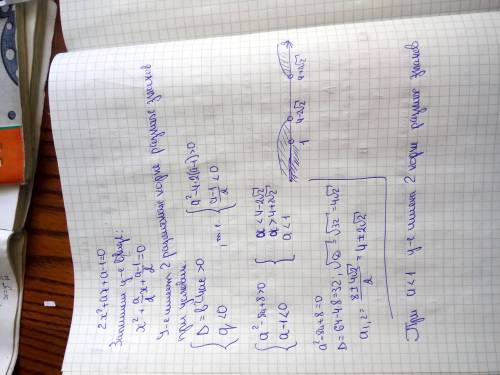 2x²+ax+a-1=0
Запишем у-е в виде:
x²+a/2x+a-1/2=0
У-е имеет 2 различных корня разных знаков
при условии:
{ D=b²-4ac>0
q<0 , т.е. { a²-4·2(a-1)>0
a-1/2<0
{ a²-8a+8>0
a-1<0 { a<4-2√2
a>4+2√2
a<1
1 4-2√2 4+2√2 a
a²-8a+8=0
D=64-32=32, √D=√32=4√2
a₁,₂=8±4√2/2=4±2√2
При a<1 у-е имеет 2 корня разных знаков